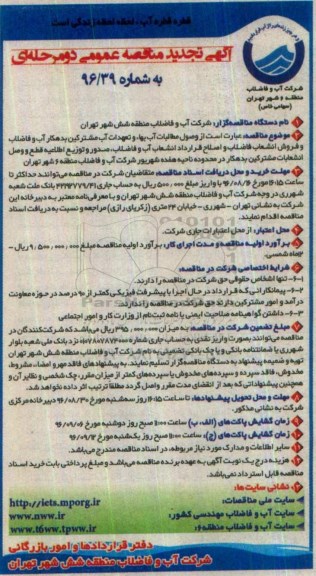 قطره قطره آب، لحظه لحظه زندگی است
آگهی تجدید مناقصه عمومی دومرحله‌ای
به شماره ۹۶/۳۹
شرکت آب و فاضلاب
منطقه ۶ شهر تهران
(سهامی خاص)
۱- نام دستگاه مناقصه‌گزار: شرکت آب و فاضلاب منطقه شش شهر تهران
۲- موضوع مناقصه: عبارت است از وصول مطالبات آب‌بها، و تعهدات آب مشترکین بدهکار آب و فاضلاب
و فروش انشعاب فاضلاب و اصلاح قرارداد انشعاب آب و فاضلاب، صدور و توزیع اطلاعیه قطع و وصل
انشعابات مشترکین بدهکار در محدوده ناحیه هفده شهرری شرکت آب و فاضلاب منطقه ۶ شهر تهران
۳- مهلت خرید و محل دریافت اسناد مناقصه: متقاضیان شرکت در مناقصه می‌توانند حداکثر تا
ساعت ۱۶:۱۵ مورخ ۹۶/۰۸/۱۶ با واریز مبلغ ۵۰۰,۰۰۰ ریال به حساب جاری بانک ملت شعبه
شهرری در وجه شرکت آب و فاضلاب منطقه شش شهر تهران و با معرفی‌نامه معتبر به دبیرخانه این
شرکت به نشانی تهران - شهرری - خیابان ۲۴ متری (زکریای رازی) مراجعه و نسبت به دریافت اسناد
مناقصه اقدام نمایند.
۴- محل اعتبار: از محل اعتبارات جاری شرکت.
۵- برآورد اولیه مناقصه و مدت اجرای کار: برآورد اولیه مناقصه مبلغ ۹,۵۰۰,۰۰۰,۰۰۰ ریال -
۱۲ماه شمسی.
۶- شرایط اختصاصی شرکت در مناقصه:
۶-۱- تنها اشخاص حقوقی حق شرکت در مناقصه را دارند.
۶-۲- پیمانکارانی که قرارداد در حال اجرا با پیشرفت فیزیکی کمتر از ۹۰ درصد در حوزه معاونت
درآمد و امور مشترکین دارند حق شرکت در مناقصه را ندارند.
۶-۳- داشتن گواهینامه صلاحیت ایمنی یا نامه ثبت‌نام از وزارت کار و امور اجتماعی
۷- مبلغ تضمین شرکت در مناقصه: به میزان ۳۹۵,۰۰۰,۰۰۰ ریال می‌باشد که شرکت‌کنندگان در
مناقصه می‌توانند بصورت واریز نقدی به حساب جاری شماره نزد بانک ملی شعبه بلوار
شهرری یا ضمانتنامه بانکی و یا چک بانکی تضمینی به نام شرکت آب و فاضلاب منطقه شش شهر تهران
تهیه و ضمیمه پیشنهاد به دستگاه مناقصه‌گزار تسلیم نمایند. به پیشنهادهای فاقد مهر و امضاء، مشروط،
مخدوش، فاقد سپرده و سپرده‌های مخدوش یا سپرده‌های کمتر از میزان مقرر، چک شخصی و نظایر آن و
همچنین پیشنهاداتی که بعد از انقضای مدت مقرر واصل گردد مطلقاً ترتیب اثر داده نخواهد شد.
۸- مهلت و محل تحویل پیشنهادها: تا ساعت ۱۶:۱۵ روز سه‌شنبه مورخ ۹۶/۰۸/۳۰ دبیرخانه مرکزی
شرکت به نشانی مذکور.
۹- زمان گشایش پاکت‌های (الف، ب) ساعت ۱۰:۰۰ صبح روز دوشنبه مورخ ۹۶/۰۹/۰۶
۱۰- زمان گشایش پاکت‌های (ج)، ساعت ۱۰:۰۰ صبح روز یکشنبه مورخ ۹۶/۰۹/۱۲
۱۱- سایر اطلاعات و مدارک مورد نیاز مربوطه، در اسناد مناقصه مندرج می‌باشد.
۱۲- هزینه درج یک نوبت آگهی به عهده برنده مناقصه می‌باشد و مبلغ پرداختی بابت خرید اسناد
مناقصه قابل استرداد نمی‌باشد.
۱۳- نشانی سایت‌ها:
سایت ملی مناقصات: http://iets.mporg.ir
سایت آب و فاضلاب مهندسی کشور: www.nww.ir
سایت آب و فاضلاب منطقه ۶: www.t6ww.tpww.ir
دفتر قراردادها و امور بازرگانی
شرکت آب و فاضلاب منطقه شش شهر تهران